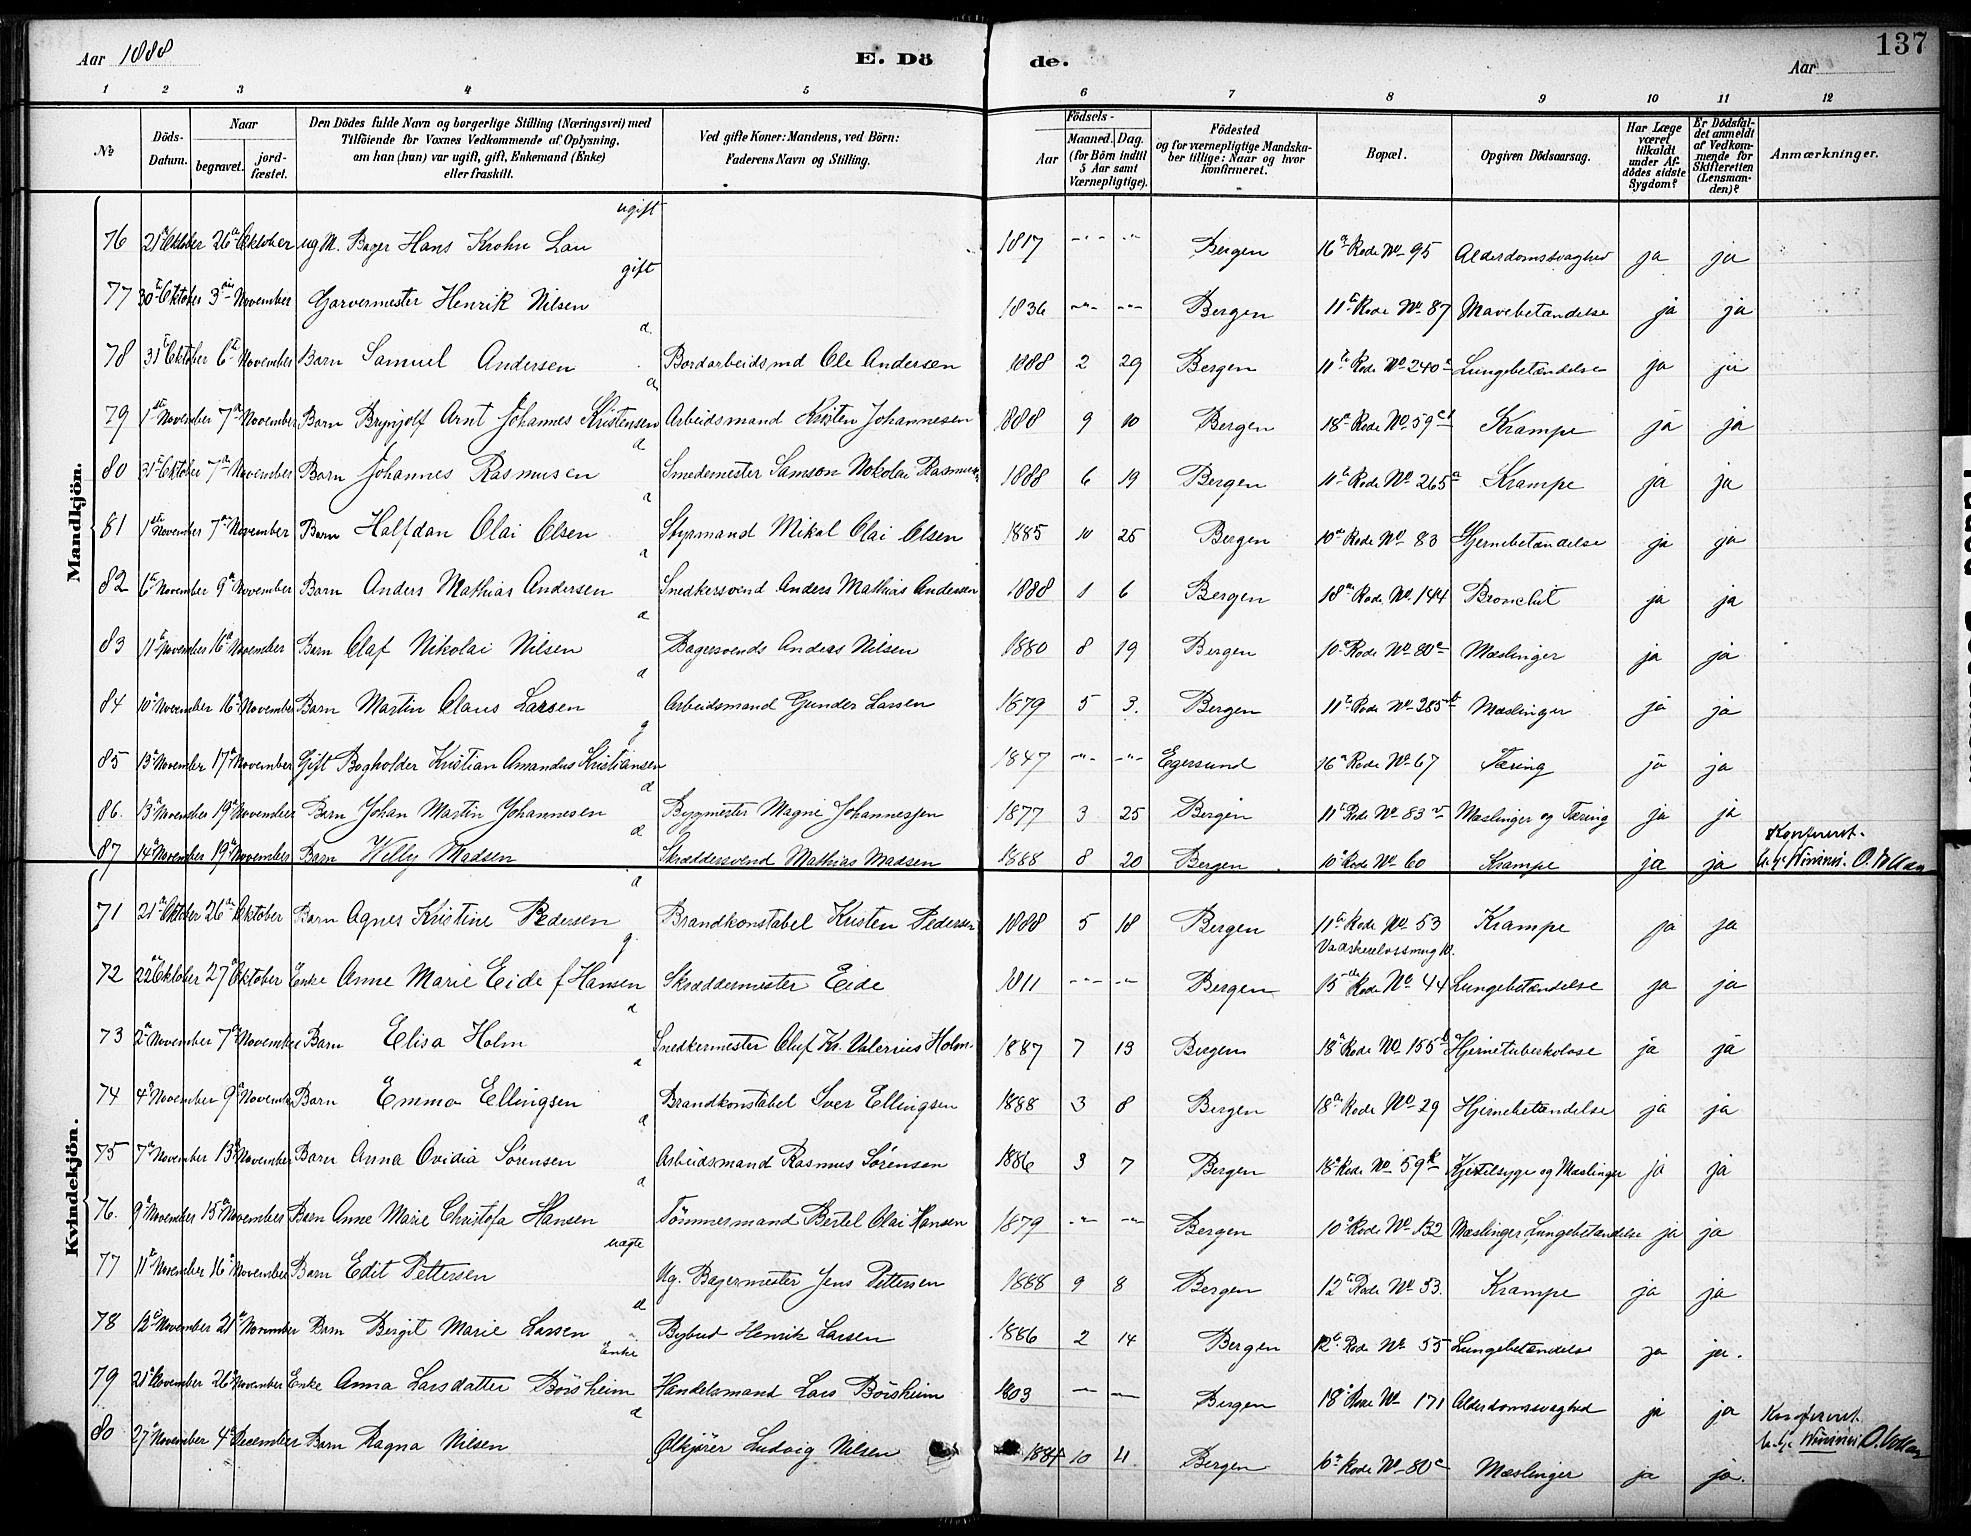 Aar 1888
E. Dö de.
Aar
137
1 2 3 4 5 6 7 8 9 10 11 12
№
Döds-Datum.
Naar
begravet.
jord-fæstet.
Den Dödes fulde Navn og borgerlige Stilling (Næringsvei) med
Tilföiende for Voxnes Vedkommende af Oplysning,
om han (hun) var ugift, gift, Enkemand (Enke)
eller fraskilt.
Ved gifte Koner: Mandens, ved Börn:
Faderens Navn og Stilling.
Födsels-
Aar
Maaned. Dag.
(for Börn indtil 5 Aar samt Værnepligtige).
Födested
og for værnepligtige Mandska-
ber tillige: Naar og hvor
konfirmeret.
Bopæl.
Opgiven Dödsaarsag.
Har Læge været tilkaldt under Afdödes sidste Sygdom?
Er Dödsfaldet anmeldt af Vedkommende for Skifteretten (Lensmanden)?
Anmærkninger.
Mandkjön.
ugift
76 21 Oktober 26 Oktober Bager Hans Krohn Lau 1817 " " Bergen 16 Rode No 95 Alderdomssvaghed ja ja
gift
77 30 Oktober 3 November Garvermester Henrik Nilsen 1836 " " Bergen 11 Rode No 87 Mavebetændelse ja ja
78 31 Oktober 6 November Barn Samuel Andersen Bordarbeidsmd Ole Andersen 1888 2 29 Bergen 11 Rode No 240 Lungebetændelse ja ja
79 1 November 7 November Barn Brynjolf Arnt Johannes Kristensen Arbeidsmand Kristen Johannesen 1888 9 10 Bergen 18 Rode No 59 Krampe ja ja
80 31 Oktober 7 November Barn Johannes Rasmusen Smedemester Samson Nokolai Rasmusen 1888 6 19 Bergen 11 Rode No 265a Krampe ja ja
81 1 November 7 November Barn Halfdan Olai Olsen Styrmand Mikal Olai Olsen 1885 10 25 Bergen 10 Rode No 83 Hjernebetændelse ja ja
82 6 November 9 November Barn Anders Mathias Andersen Snedkersvend Anders Mathias Andersen 1888 1 6 Bergen 18 Rode No 144 Bronchit ja ja
83 11 November 16 November Barn Olaf Nikolai Nilsen Bagersvends Andreas Nilsen 1880 8 19 Bergen 10 Rode No 80 Mæslinger ja ja
84 10 November 16 November Barn Martin Claus Larsen Arbeidsmand Gunder Larsen 1879 5 3. Bergen 11 Rode No 285 Mæslinger ja ja
85 13 November 17 November Gift Bogholder Kristian Amandus Kristiansen 1847 " " Egersund 16 Rode No 67 Tæring ja ja
86. 13 November 19 November Barn Johan Martin Johannesen Bygmester Magne Johannesen 1877 3 25 Bergen 11 Rode No 83 Mæslinger og Tæring ja ja
87 14 November 19 November Barn Willy Madsen Skræddersvend Mathias Madsen 1888 8 20 Bergen 10 Rode No 60 Krampe ja ja
Konfereret.
Kvindekjön.
71 21 Oktober 26 Oktober Barn Agnes Kristine Pedersen Brandkonstabel Kristen Pedersen 1888 5 18 Bergen 11 Rode No 53 Krampe ja ja
72 22 Oktober 27 Oktober Enke Anne Marie Eide f Hansen Skræddermester Eide 1811 " " Bergen 15 Rode No 44 Lungebetændelse ja ja
73 2 November 7 November Barn Elisa Holm Snedkermester Oluf Kr. Valerius Holm. 1887 7 13 Bergen 18 Rode No 155b Hjernetuberkolose ja ja
74 4 November 9 November Barn Emma Ellingsen Brandkonstabel Iver Ellingsen 1888 3 8 Bergen 18 Rode No 29 Hjernebetændelse ja ja
75 7 November 13 November Barn Anna Ovidia Sørensen Arbeidsmand Rasmus Sørensen 1886 3 7 Bergen 18 Rode No 59 Kjertelsyge og Mæslinger ja ja
76. 9 November 15 November Barn Anne Marie Christofa Hansen Tömmermand Bertel Olai Hansen 1879 " " Bergen 10 Rode No 132 Mæslinger, Lungebetændelse ja ja
uægte
77 11 November 16 November Barn Edit Pettersen Ug. Bagermester Jens Pettersen 1888 9 8 Bergen 12 Rode No 53. Krampe ja ja
78 12 November 21 November Barn Bergit Marie Larsen Bybud Henrik Larsen 1886 2 14 Bergen 12 Rode No 55 Lungebetændelse ja ja.
Enke
79 21 November 26 November Enke Anna Larsdatter Börsheim Handelsmand Lars Börsheim 1803 Bergen 18 Rode No 171 Alderdomssvaghed ja ja
80 27 November 4 December Barn Ragna Nilsen Ølkjører Ludvig Nilsen 1884 10 21 Bergen 10 Rode No 80c Mæslinger ja ja.
Konfereret.